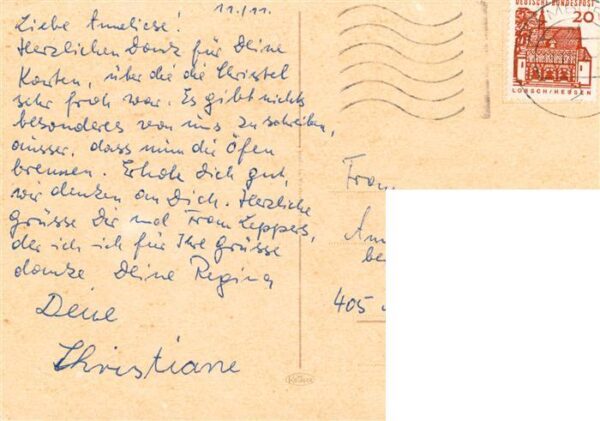 11./11.
Liebe Anneliese!
Herzlichen Dank für Deine
Karten, über die die Christel
sehr froh war. Es gibt nichts
besonderes von uns zu schreiben,
ausser, dass nun die Öfen
brennen. Erhole Dich gut,
wir denken an Dich. Herzliche
Grüsse Dir und Frau Leppers,
der ich ich für Ihre Grüsse
danke Deine Regina
Deine
Christiane
DEUTSCHE BUNDESPOST
20
LORSCH/HESSEN
Frau
An
be
405